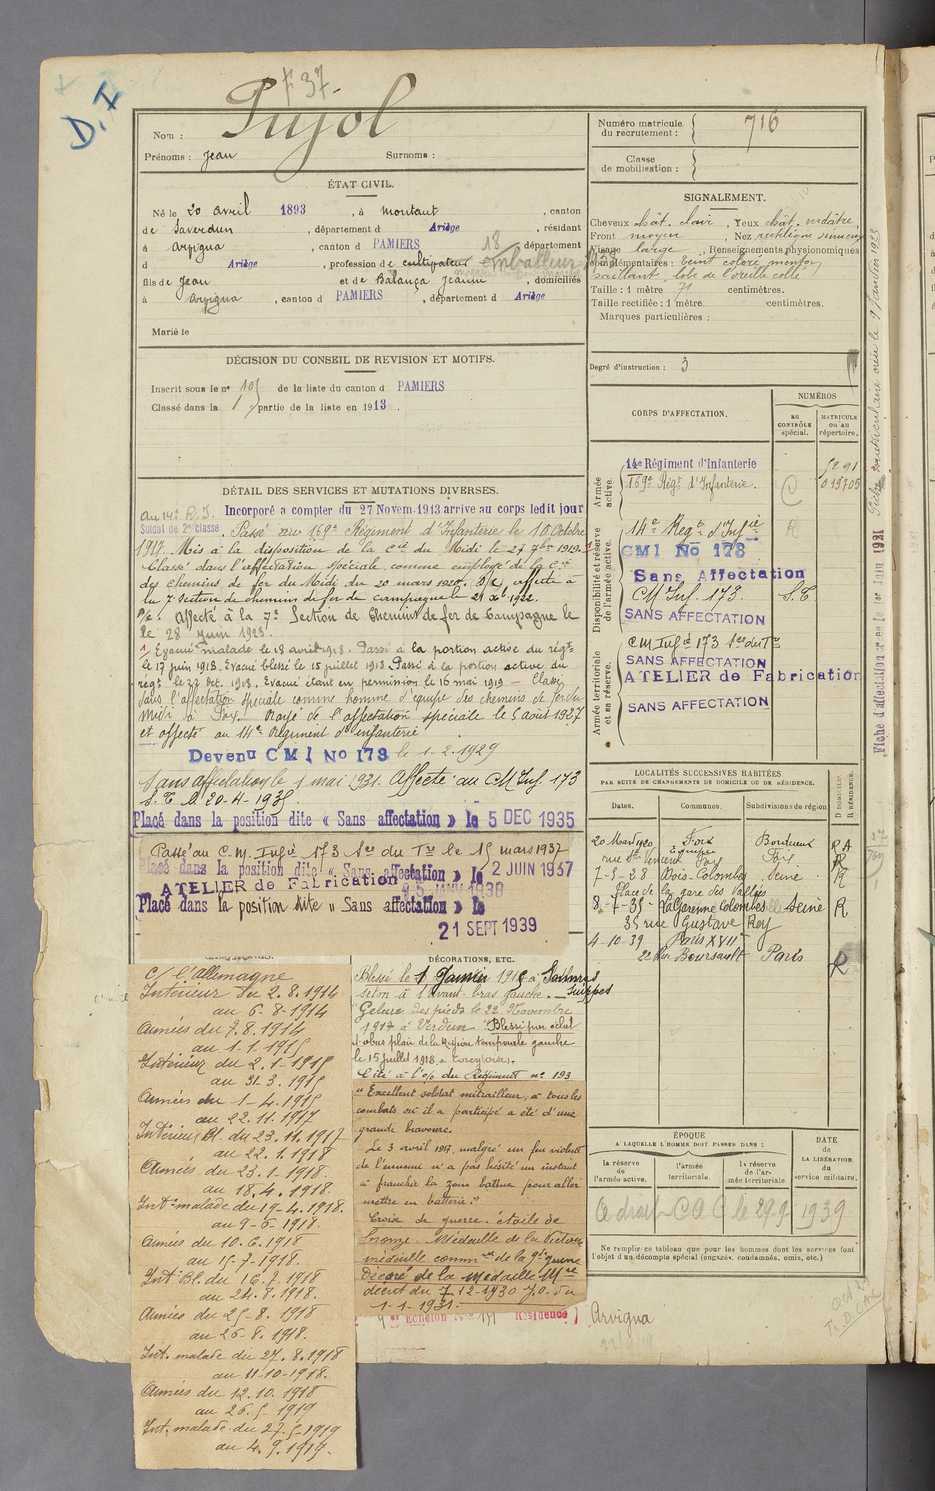 D.I
F 37.
Nom : Pujol
Prénoms : Jean Surnoms :
Numéro matricule du recrutement : 716
Classe de mobilisation :
ÉTAT CIVIL.
Né le 20 avril 1893, à Montaut, canton
de Saverdun, département d Ariège, résidant
à Arvigna, canton d PAMIERS, département
d Ariège, profession de cultivateur Emballeur
fils de Jean et de Balança Jeanne, domiciliés
à Arvigna, canton d PAMIERS, département d Ariège
Marié le
SIGNALEMENT.
Cheveux chât. clair, Yeux chât. verdâtre
Front moyen, Nez rectiligne sinueux
Visage large, Renseignements physionomiques
complémentaires : teint coloré, menton
saillant, lobe de l'oreille collé
Taille : 1 mètre 71 centimètres.
Taille rectifiée : 1 mètre centimètres.
Marques particulières :
Degré d'instruction : 3
DÉCISION DU CONSEIL DE REVISION ET MOTIFS.
Inscrit sous le n° 105 de la liste du canton d PAMIERS
Classé dans la 1 partie de la liste en 1913.
DÉTAIL DES SERVICES ET MUTATIONS DIVERSES.
Incorporé a compter du 27 Novem. 1913 arrive au corps ledit jour
au 14e R.I.
Soldat de 2e classe. Passé au 169e Régiment d'Infanterie le 10 Octobre
1917. Mis à la disposition de la Cie du Midi le 27 7bre 1919.
Classé dans l'affectation spéciale comme employé de la Cie
des chemins de fer du Midi du 20 mars 1920. affecté à
la 7e section de chemins de fer de campagne le 21 Xbre 1922.
P/c. Affecté à la 7e Section de Chemins de fer de Campagne le
le 28 Juin 1923.
1/ Evacué malade le 19 avril 1918. Passé à la portion active du régt
le 17 juin 1918. Evacué blessé le 15 juillet 1918. Passé à la portion active du
régt le 22 oct. 1918. Evacué étant en permission le 16 mai 1919 — Classé
dans l'affectation spéciale comme homme d'équipe des chemins de fer du
Midi à Foix. Rayé de l'affectation spéciale le 5 août 1927
et affecté au 14e Régiment d'infanterie
Devenu CMI No 173 le 1.2.1929
Sans affectation le 1 mai 1931. Affecté au CM Inf. 173
S.T. le 20-4-1935.
Placé dans la position dite « Sans affectation » le 5 DEC 1935
Passé au C.M. Infie 173 Ser du Tre le 15 mars 1937
Placé dans la position dite « Sans affectation » le 2 JUIN 1937
ATELIER de Fabrication
Placé dans la position dite « Sans affectation » le
21 SEPT 1939
CORPS D'AFFECTATION.
NUMÉROS
au CONTRÔLE spécial.
MATRICULE ou au répertoire.
Armée active.
14e Régiment d'Infanterie 5291
169e Régt d'Infanterie. 013705
Disponibilité et réserve de l'armée active.
14e Regt d'Infie
CMI No 173
Sans Affectation
CM Inf. 173. S.T.
SANS AFFECTATION
Armée territoriale et sa réserve.
CM Infie 173 Ser du Tre
SANS AFFECTATION
ATELIER de Fabrication
SANS AFFECTATION
LOCALITÉS SUCCESSIVES HABITÉES
PAR SUITE DE CHANGEMENTS DE DOMICILE OU DE RÉSIDENCE.
Dates. Communes. Subdivisions de région D DOMICILE R RÉSIDENCE.
20 Mars 1920 Foix Bordeaux R
rue St Vincent Foix Foix R
7-5-28 Bois-Colombes Seine R
Place de la gare des Vallées
8-7-35 La Garenne Colombes Seine R
35 rue Gustave Rey
4-10-39 Paris XVII
22 rue Boursault Paris R
ÉPOQUE
A LAQUELLE L'HOMME DOIT PASSER DANS :
la réserve de l'armée active.
l'armée territoriale.
la réserve de l'armée territoriale
DATE DE LA LIBÉRATION du service militaire.
A droit CAC le 29.9 1939
Ne remplir ce tableau que pour les hommes dont les services font
l'objet d'un décompte spécial (engagés, condamnés, omis, etc.)
Fiche d'affectation créée le 1er Juin 1921
Fiche matriculaire créée le 9 Janvier 1923
C/ l'Allemagne
Intérieur du 2.8.1914
au 6-8-1914
Armées du 7.8.1914
au 1.1.1915
Intérieur du 2.1.1915
au 31.3.1915
Armées du 1-4.1915
au 22.11.1917
Intérieur Bl. du 23.11.1917
au 22.1.1918
Armées du 23.1.1918
au 18.4.1918.
Int. malade du 19-4.1918.
au 9-6.1918.
Armées du 10.6.1918
au 15-7-1918.
Int. Bl. du 16.7.1918
au 24.8.1918.
Armées du 25-8.1918
au 26.8.1918.
Int. malade du 27.8.1918
au 11-10-1918.
Armées du 12.10.1918
au 26.5.1919
Int. malade du 27.5.1919
au 4.9.1919.
DÉCORATIONS, ETC.
Blessé le 1 Janvier 1915 à Souhnes Suippes
séton à l'avant-bras gauche.
Gelure des pieds le 22 Novembre
1917 à Verdun. Blessé par éclat
d'obus plaie de la région temporale gauche
le 15 juillet 1918, à Corcy (Oise).
Cité à l'o/ du Régiment n° 193
"Excellent soldat mitrailleur, a tous les
combats où il a participé a été d'une
grande bravoure.
Le 3 avril 1917, malgré un feu violent
de l'ennemi n'a pas hésité un instant
à franchir la zone battue pour aller
mettre en batterie."
Croix de guerre. étoile de
bronze. Médaille de la Victoire
médaille commve de la gde guerre
Décoré de la Médaille Mre
décret du 7.12.1930 J.O. du
1-1-1931.
Echelon Résidence ) Arvigna